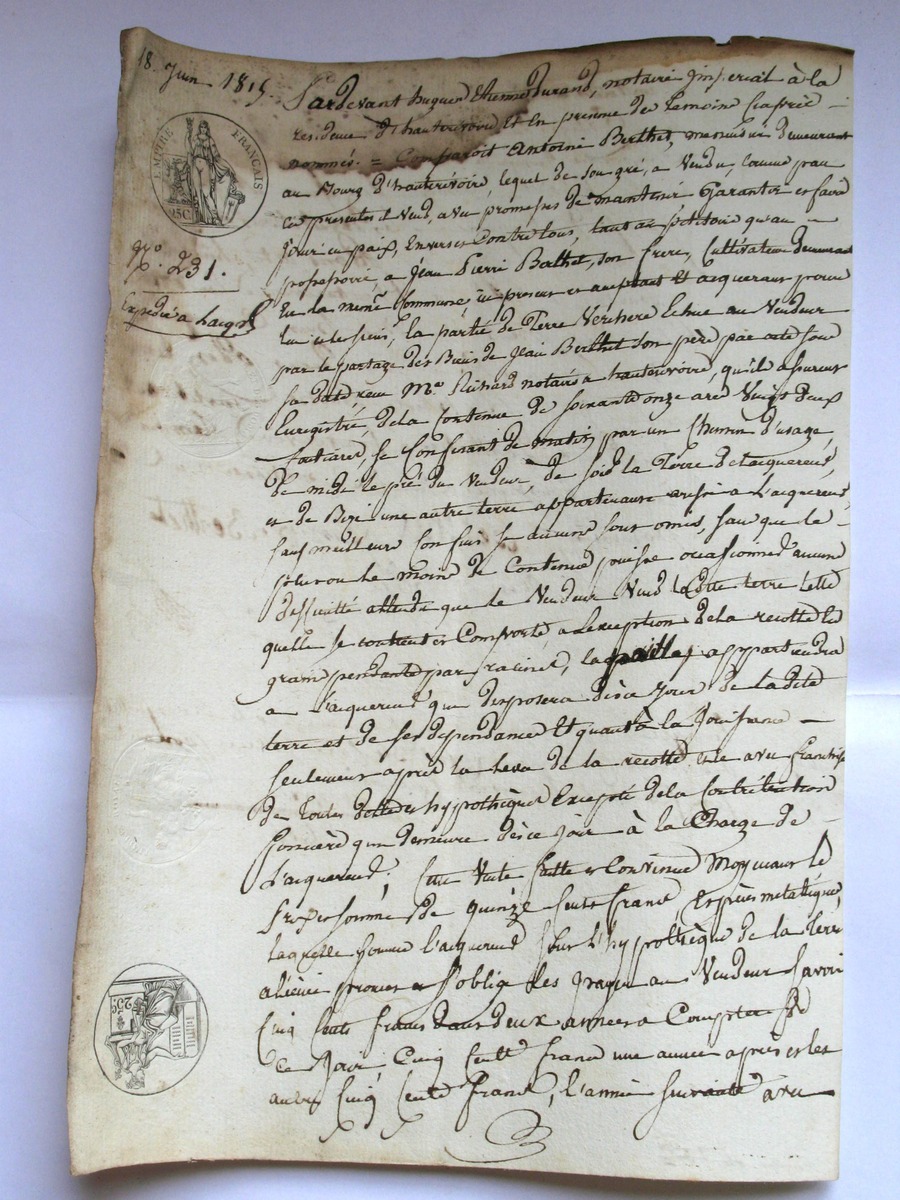 18 Juin 1815.
EMPIRE FRANÇAIS
25C
N.o 231.
Expédié a Lacq.r
Pardevant hugues Etienne Durand, notaire imperial à la
residence d'hauterivoire Et En presence de temoins ci après
nommés. = Comparoit Antoine Berthet, menuisier demeurant
au Bourg d'hauterivoire, lequel de son gré, a vendu, comme par
ces presentes il vend, avec promesses de maintenir Garantir et faire
jouir en paix, Envers et Contre tous, tant au petitoire qu'au
possessoire, a Jean Pierre Berthet, son frere, Cultivateur demeurant
En la meme Commune ici present et acceptant Et acquerant pour
lui et les siens, la partie de Terre Verchere Echue au Vendeur
par le partage des Biens de Jean Berthet son père par acte sous
sa date reçu M.e Richard notaire a hauterivoire, qu'ils assurent
Enregistré, de la Contenue de soixante onze ares Vingt deux
Centiares, se Confinant de matin par un Chemin d'usage,
de midi le pré du Vendeur, de soir la Terre de l'acquereur,
et de Bize une autre terre appartenante aussi a l'acquereur,
sauf meilleurs Confins si aucuns sont omis, sans que le
plus ou le moins de Contenue puisse occasionner aucune
difficulté attendu que le Vendeur Vend ladite terre telle
quelle se contient et Comporte, a l'exception de la recolte en
grain pendante par racines, la paille appartiendra
a l'acquereur qui disposera dès ce Jour de ladite
terre et de ses dependances Et quant à la Jouissance
seulement après la leva de la recolte et avec franchise
de Toutes dettes et hypothèques Excepté de la Contribution
fonciere qui demeure dès ce jour à la Charge de
L'acquereur. Cette Vente faitte et Convenue Moyennant le
Prix et somme de quinze Cents francs, Espèces metalliques,
laquelle somme l'acquereur sous l'hypothèque de la Terre
aliénée promet et s'oblige les payer au Vendeur Savoir
Cinq Cents francs dans deux années a Compter de
Ce Jour, Cinq Cents francs une année après et les
autres Cinq Cents francs, l'année suivante avec
25C